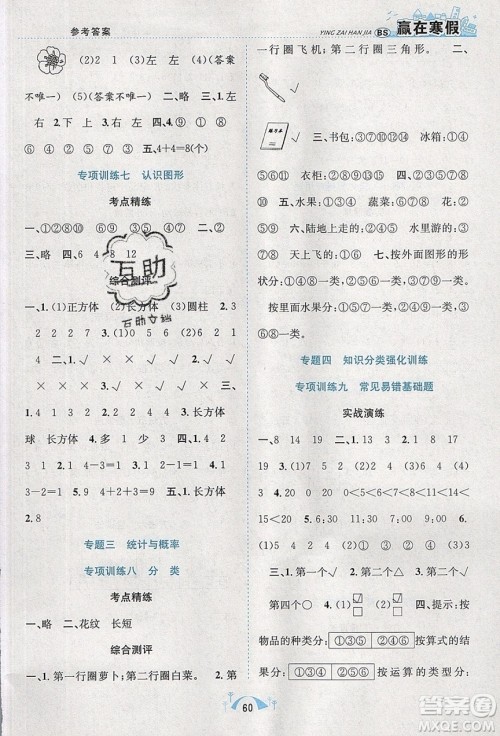 参考答案
YING ZAI HAN JIA BS 赢在寒假
(2)2 1 (3)左 左 (4)(答案
不唯一) (5)(答案不唯一) 二、略 三、1.左
右 2.右 下 左 上 四、⑨ ① ⑤ ④
③ ⑦ ② ⑥ ⑧ 五、4+4=8(个)
专项训练七 认识图形
考点精练
一、①②⑧⑩ ④ ③⑥⑨ ⑤⑦
二、略 四、6 4 8 12
综合测评
一、1.(1)正方体 (2)长方体 (3)圆柱 2.2
1 4 3 3.(1)2 (2)9 (3)6
二、× √ × √ × √ × √ ×
三、1.4 1 2 1 2.√ × × 3.长方体
球 长方体 4.2 5.√ 四、1.2+4=6
3-2=1 2.4+2+3=9 五、1.长方体
2.8
专题三 统计与概率
专项训练八 分 类
考点精练
一、略 二、花纹 长短
综合测评
一、1.第一行圈萝卜;第二行圈白菜。 2.第
一行圈飞机;第二行圈三角形。 二、
练习本
☑ 三、书包:③⑦⑥⑩ 冰箱:②④
⑧⑨ 衣柜:①⑤⑪⑫ 四、①③⑤ ②④
⑥ 五、水果:①③④ 蔬菜:②⑤⑥
六、陆地上走的:①② 水里游的:③⑤⑧
天上飞的:④⑥⑦ 七、按外面图形的形
状分:①③⑤⑧一类,②④⑥⑦一类。
按里面的图形分:①②⑤⑥一类,③④
⑦⑧一类。
专题四 知识分类强化训练
专项训练九 常见易错基础题
实战演练
一、8 14 19 二、2 4 4 8 14 17
19 三、7 3 4 10 0<2<4<5<10
<11<15<20 20>15>11>10>5>4
>2>0 四、1.第一个☑ 2.第二个△ 3.
第四个○ 4.第二个☑ 四、提示:按
物品的种类分:①③⑤ ②④⑥ 按算式的
结果分:①③④ ②⑤⑥ 按运算的类型分:
互助
互助文档
60
答案圈